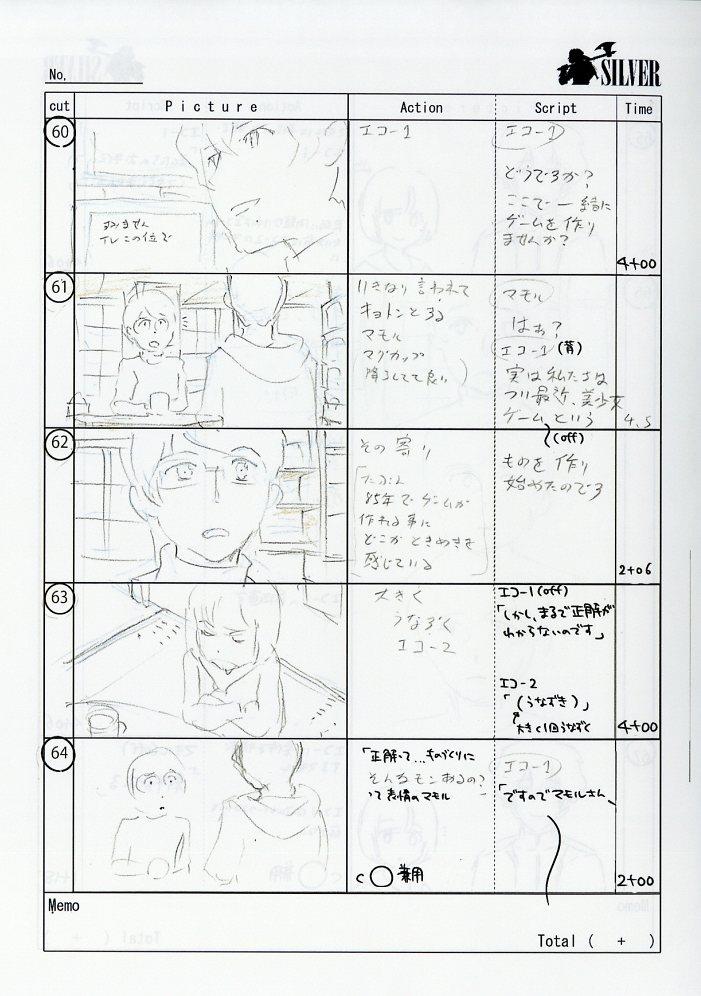 No.
SILVER
cut
Picture
Action
Script
Time
60
すみません
イレこの位で
エコー1
エコー1
どうですか?
ここで一緒に
ゲームを作り
ませんか?
4+00
61
いきなり言われて
キョトンとする
マモル
マグカップ
降ろしてて良い)
マモル
はぁ?
エコー1(背)
実は私たちは
つい最近、美少女
ゲームという
4.5
62
その寄り
「たぶん
85年でゲームが
作れる事に
どこかときめきを
感じている
(off)
ものを作り
始めたのです
2+06
63
大きく
うなずく
エコー2
エコー1(off)
「しかし、まるで正解が
わからないのです」
エコー2
「(うなずき)」
大きく1回うなずく
4+00
64
「正解って…ものづくりに
そんなモンあるの?」
って表情のマモル
c 兼用
エコー1
「ですのでマモルさん、
2+00
Memo
Total ( + )